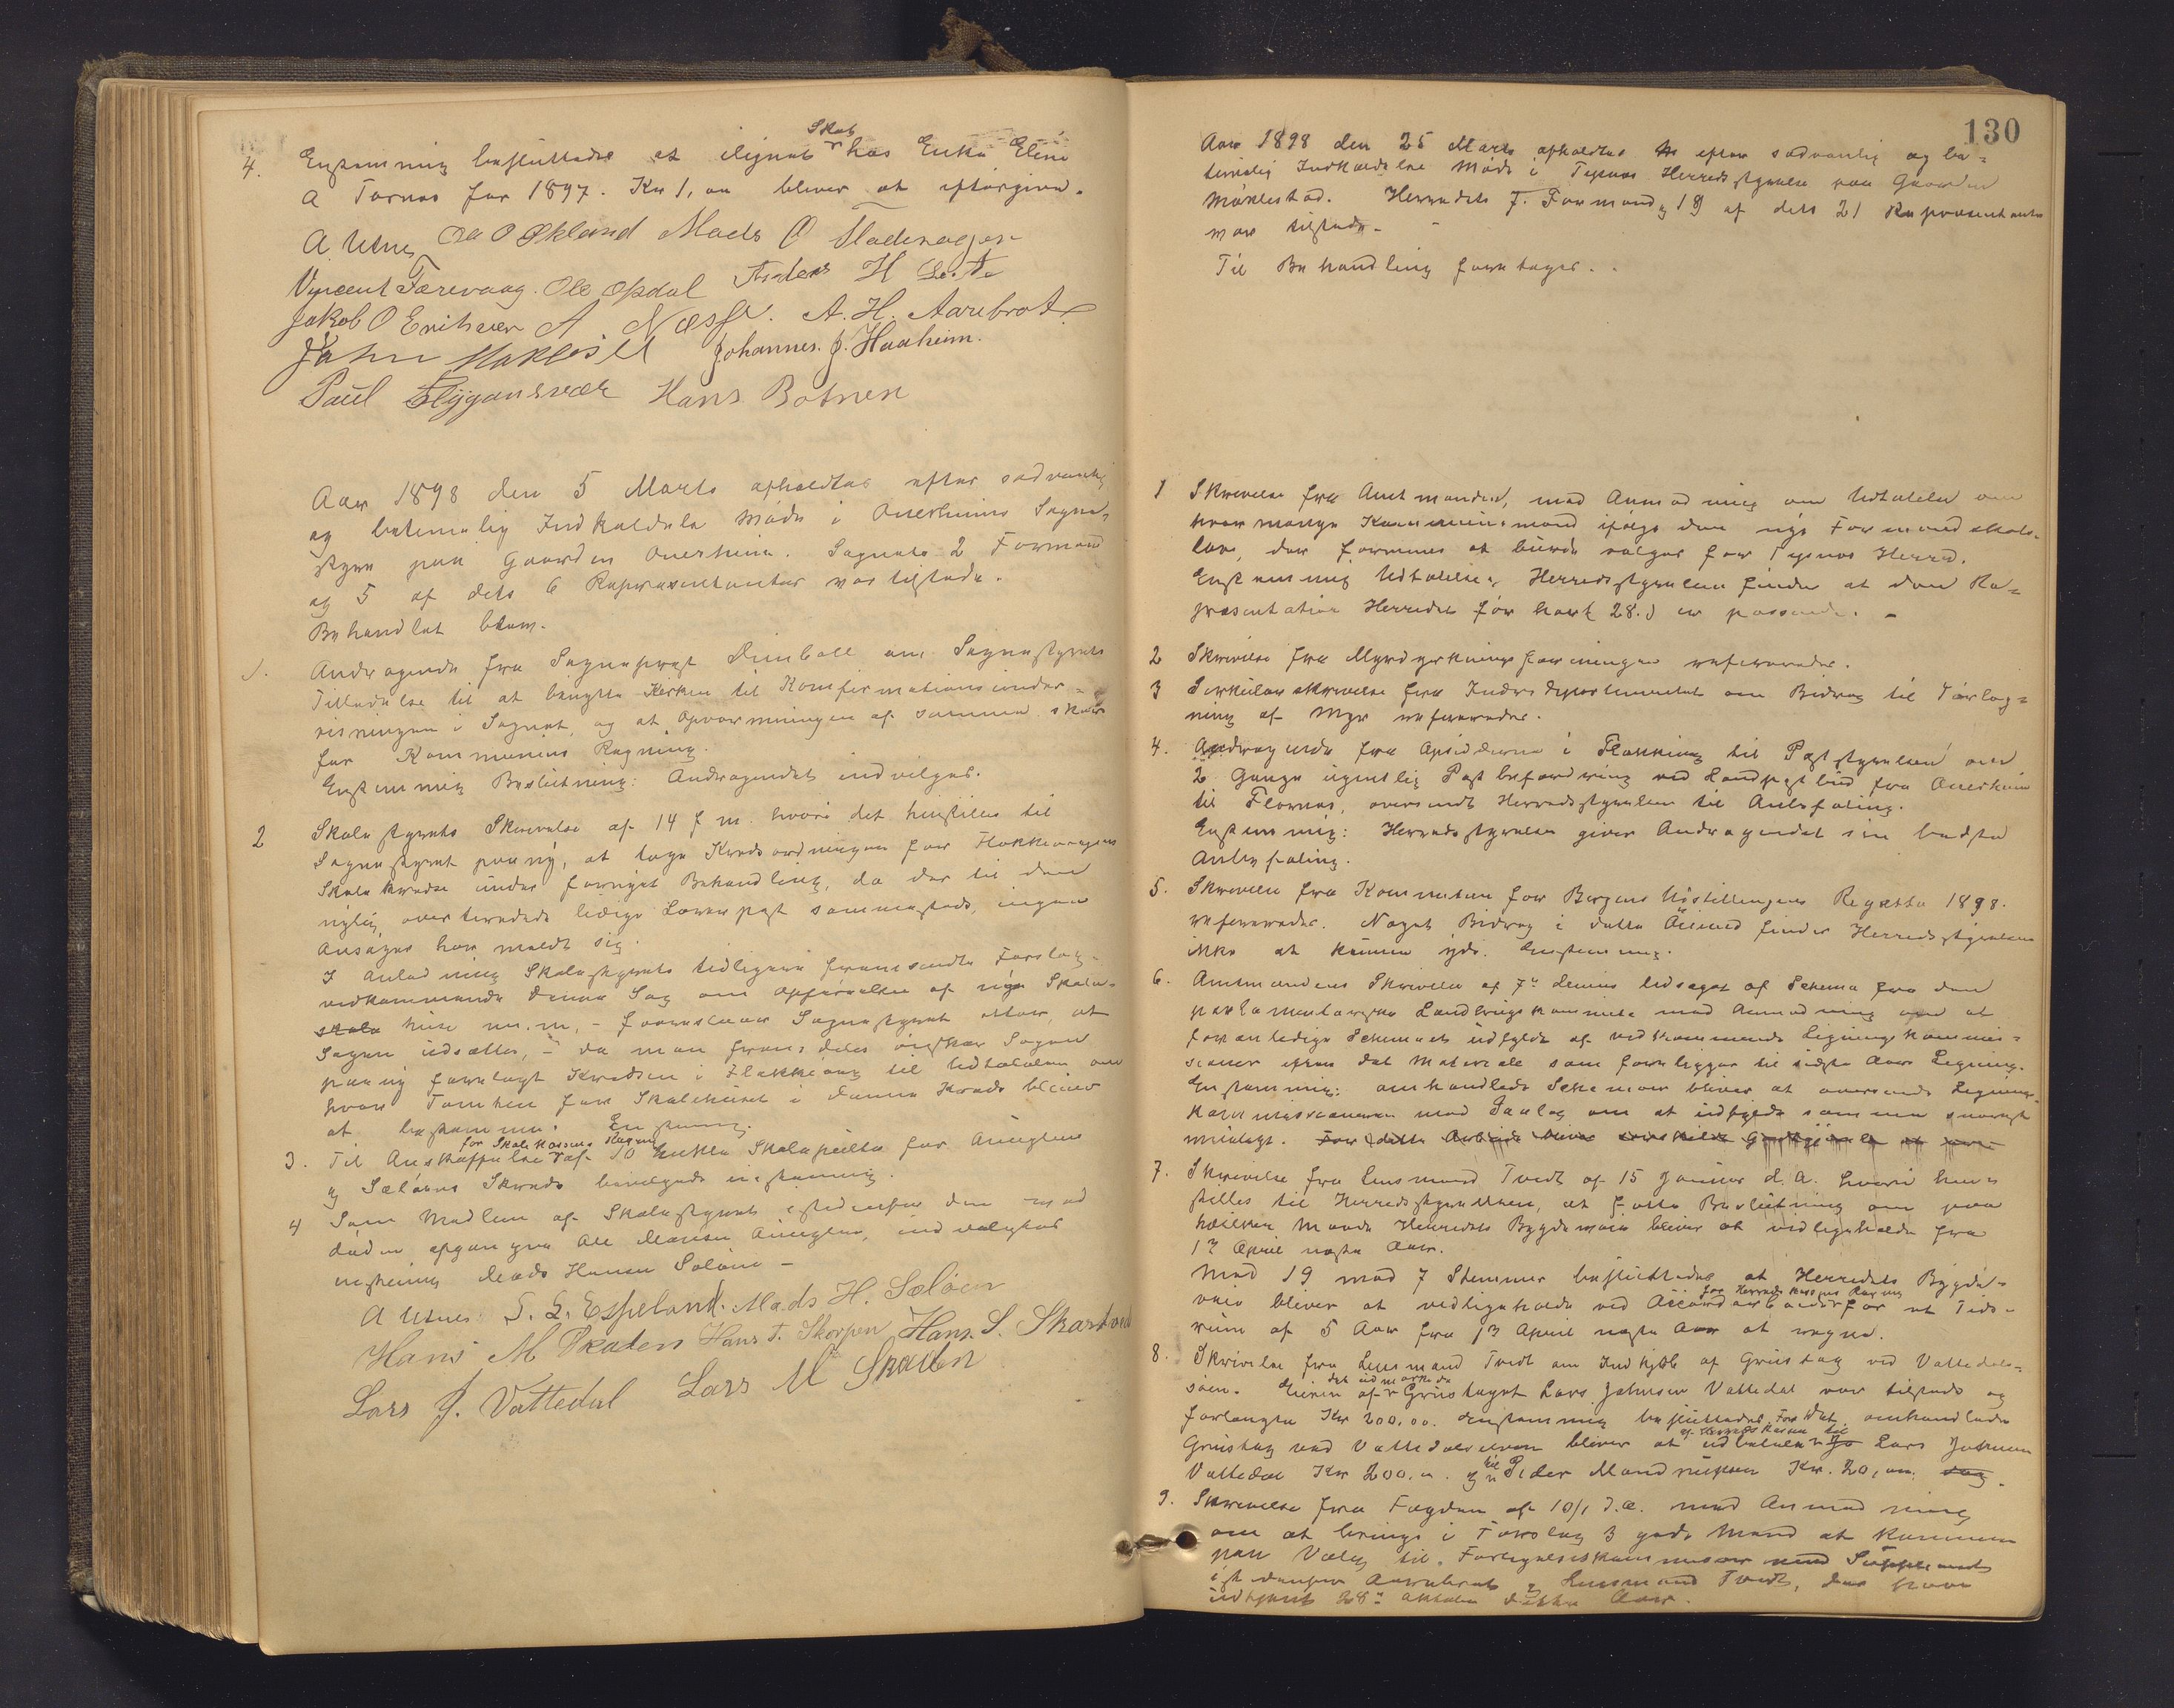 4. Enstemmig besluttedes at ilignet Skat hos Enke Eline
A Tornes for 1897. Kr 1,00 bliver at eftergive.
A. Utne Ola O Økland Mads O Hadenæger
Vincent Færevaag. Ole Opdal Anders H Leite
Jakob O Eriksen A. Næsse. A. H. Aarebrot
John Møklestad Johannes. J. Haaheim.
Paul Flygansvær Hans Botnen
Aar 1898 den 5 Marts afholdtes efter sædvanlig
og betimelig Indkaldelse Møde i Onerheims Sogne-
styre paa Gaarden Onerheim. Sognets 2 Formænd
og 5 af dets 6 Repræsentanter var tilstede.
Behandlet blev.
1. Andragende fra Sogneprest Dunball om Sognestyrets
Tilladelse til at benytte Kirken til Konfirmationsunder-
visningen i Sognet, og at Opvarmningen af samme sker
for Kommunens Regning.
Enstemmig Beslutning: Andragendet indvilges.
2 Skolestyrets Skrivelse af 14 f m. hvori det henstilles til
Sognestyret paany, at tage Kredsordningen for Flakkevaagens
Skolekreds under fornyet Behandling, da der til den
nylig overtrædede ledige Lærerpost sammesteds, ingen
Ansøger har meldt sig.
I Anledning Skolestyrets tidligere fremsendte Forslag
vedkommende denne Sag om Opførelse af nye Skole-
skole huse m.m, - foreslaar Sognestyret atter, at
Sagen udsættes, - da man fremdeles ønsker Sagen
paany forelagt Kredsen i Flakkevaag til Udtalelse om
hvor Tomten for Skolehuset i denne Kreds bliver
at bestemme. Enstemmig.
3. Til Anskaffelse for Skolekassens Regning af 10 Skolepulte for Aunglen
og Sæløens Skreds bevilgedes enstemmig.
4 Som Medlem af Skolestyret istedenfor den ved
døden afgangne Ole Larsen Aunglen, indvalgtes
enstemmig Mads Hansen Sæløen -
A Utne. S. L. Espeland. Mads H. Sæløen
Hans M Skaden Hans T. Skorpen Hans. S. Skartved
Lars J. Vattedal Lars M Skaden
130
Aar 1898 den 25 Marts afholdtes efter sædvanlig og be-
timelig Indkaldelse Møde i Tysnes Herredsstyrelse paa Gaarden
Møklestad. Herredets 7. Formænd og 19 af dets 21 Repræsentanter
var tilstede.
Til Behandling foretages.
1 Skrivelse fra Amtmanden, med Anmodning om Udtalelse om
hvor mange Kommunemænd ifølge den nye Formandskabs-
lov, der formenes at burde vælges for Tysnes Herred.
Enstemmig Udtalelse, Herredsstyrelsen finder at den Re-
præsentation Herredet før havt (28.) er passende. -
2 Skrivelse fra Myrdyrkningsforeningen refereredes.
3 Cirkulærskrivelse fra Indredepartementet om Bidrag til Tørlæg-
ning af Myr refereredes.
4. Andragende fra Opsidderne i Flakkevaag til Poststyrelsen om
2 Gange ugentlig Postbefordring ved Landpostbud fra Onerheim
til Flornes, oversendt Herredsstyrelsen til Anbefaling.
Enstemmig: Herredsstyrelsen giver Andragendet sin bedste
Anbefaling.
5. Skrivelse fra Komiteen for Bergens Udstillingens Regatta 1898.
refereredes. Noget Bidrag i dette Øiemed finder Herredsstyrelsen
ikke at kunne yde. Enstemmig.
6. Amtmandens Skrivelse af 7de dennes ledsaget af Schema fra den
parlamentariske Landbrugskommite med Anmodning om at
foranledige Schemaet udfyldt af vedkommende Ligningskommis-
sioner efter det Materiale som foreligger til sidste Aars Ligning.
Enstemmig: omhandlede Schemaer bliver at oversende Lignings-
kommissionerne med Paalæg om at udfylde samme snarest
muligt. For dette Arbeide bliver
7. Skrivelse fra Lensmand Tvedt af 15 Januar d.A. hvori hen-
stilles til Herredsstyrelsen, at fatte Beslutning om paa
hvilken Maade Herredets Bygdeveie bliver at vedligeholde fra
13 April næste Aar.
Med 19 mod 7 Stemmer besluttedes at Herredets Bygde-
veie bliver at vedligeholde ved Accordarbeide for Herredskassens Regning for et Tids-
rum af 5 Aar fra 13 April næste Aar at regne.
8. Skrivelse fra Lensmand Tvedt om Indkjøb af Grustag ved Vattedals-
søen. Eieren af det udmærkede Grustaget Lars Johnsen Vattedal var tilstede og
forlangte Kr 200,00. Enstemmig besluttedes. For det omhandlede
Grustag ved Vattedalselven bliver at udbetale af Herredskassen til Lars Johnsen
Vattedal Kr 200,00. og til Peder Mandrupsen Kr. 20,00.
9. Skrivelse fra Fogden af 10/1 d.A. med Anmodning
om at bringe i Forslag 3 gode Mænd at komme
paa Valg til Forligelseskommissær med Suppleant
istedenfor Aarebrot og Lensmand Tvedt, der have
udtjent 28de Oktober dette Aar.